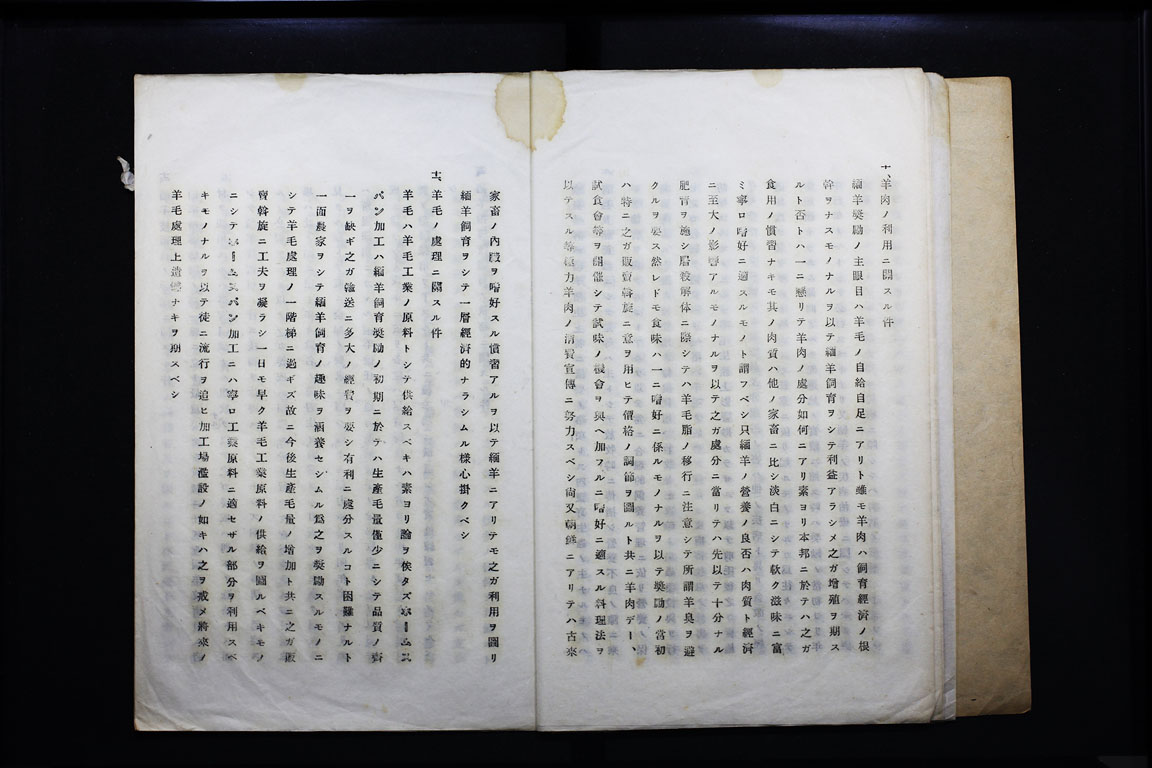 十一、羊肉ノ利用ニ關スル件
緬羊奬勵ノ主眼目ハ羊毛ノ自給自足ニアリト雖モ羊肉ハ飼育經濟ノ根
幹ヲナスモノナルヲ以テ緬羊飼育ヲシテ利益アラシメ之ガ增殖ヲ期ス
ルト否トハ一ニ懸リテ羊肉ノ處分如何ニアリ素ヨリ本邦ニ於テハ之ガ
食用ノ慣習ナキモ其ノ肉質ハ他ノ家畜ニ比シ淡白ニシテ軟ク滋味ニ富
ミ寧ロ嗜好ニ適スルモノト謂フベシ只緬羊ノ營養ノ良否ハ肉質ト經濟
ニ至大ノ影響アルモノナルヲ以テ之ガ處分ニ當リテハ先以テ十分ナル
肥育ヲ施シ屠殺解体ニ際シテハ羊毛脂ノ移行ニ注意シテ所謂羊臭ヲ避
クルヲ要ス然レドモ食味ハ一ニ嗜好ニ係ルモノナルヲ以テ奬勵ノ當初
ハ特ニ之ガ販賣斡旋ニ意ヲ用ヒテ價格ノ調節ヲ圖ルト共ニ羊肉デー、
試食會等ヲ開催シテ試味ノ機會ヲ與ヘ加フルニ嗜好ニ適スル料理法ヲ
以テスル等極力羊肉ノ消費宣傳ニ努力スベシ尙又朝鮮ニアリテハ古來
家畜ノ內臟ヲ嗜好スル慣習アルヲ以テ緬羊ニアリテモ之ガ利用ヲ圖リ
緬羊飼育ヲシテ一層經濟的ナラシムル樣心掛クベシ
十二、羊毛ノ處理ニ關スル件
羊毛ハ羊毛工業ノ原料トシテ供給スベキハ素ヨリ論ヲ俟タズホームス
パン加工ハ緬羊飼育奬勵ノ初期ニ於テハ生產毛量僅少ニシテ品質ノ齊
一ヲ缺ギ之ガ輸送ニ多大ノ經費ヲ要シ有利ニ處分スルコト困難ナルト
一面農家ヲシテ緬羊飼育ノ趣味ヲ涵養セシムル爲之ヲ奬勵スルモノニ
シテ羊毛處理ノ一階梯ニ過ギズ故ニ今後生產毛量ノ增加ト共ニ之ガ販
賣斡旋ニ工夫ヲ凝ラシ一日モ早ク羊毛工業原料ノ供給ヲ圖ルベキモノ
ニシテホームスパン加工ニハ寧ロ工業原料ニ適セザル部分ヲ利用スベ
キモノナルヲ以テ徒ニ流行ヲ追ヒ加工場濫設ノ如キハ之ヲ戒メ將來ノ
羊毛處理上遺憾ナキヲ期スベシ